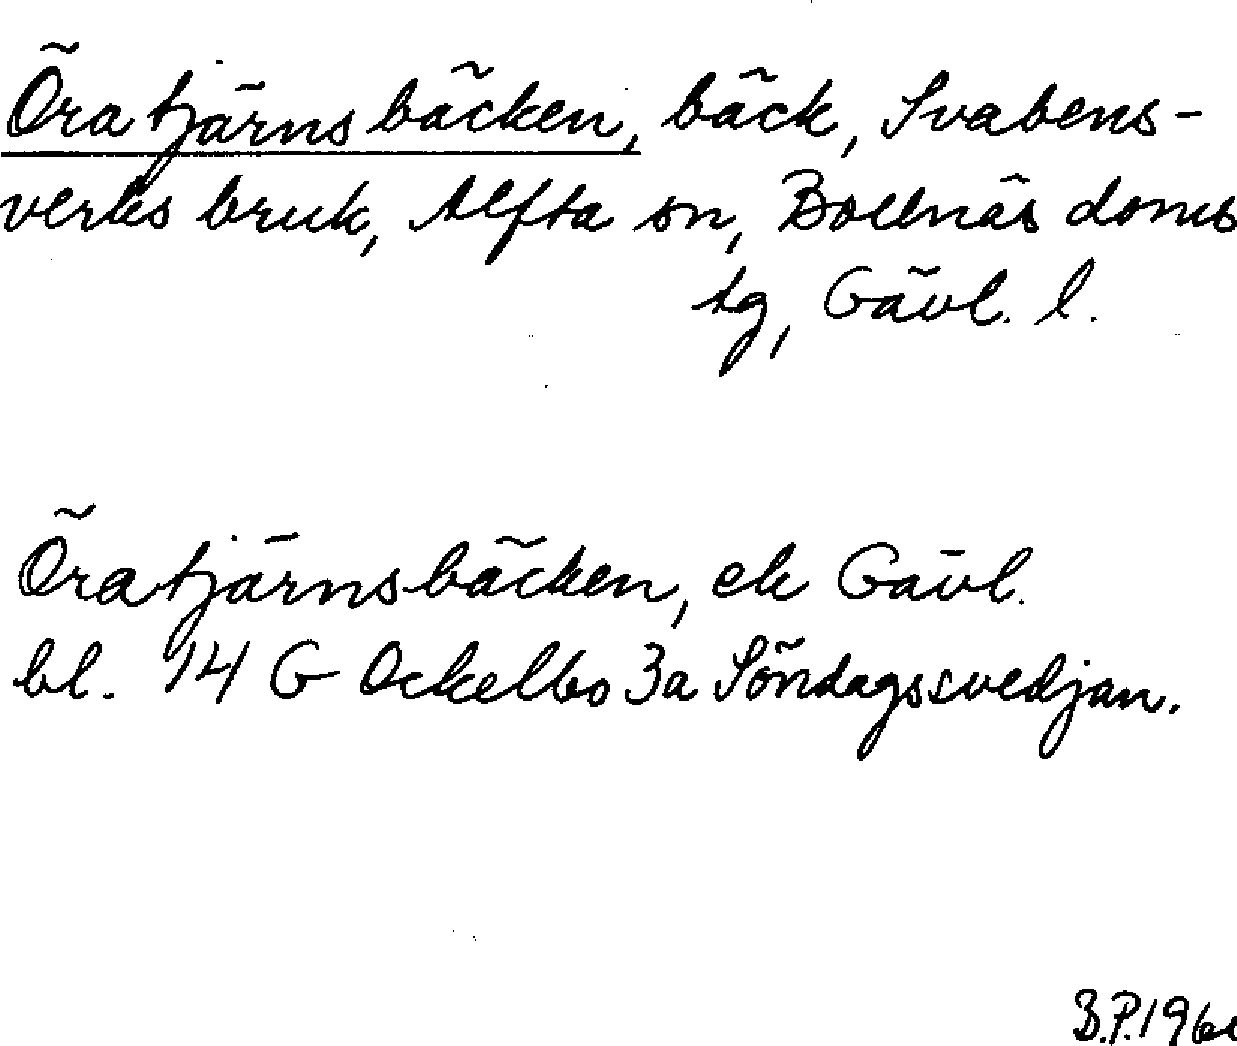 Öratjärnsbäcken, bäck, Svabens-
verks bruk, Alfta sn, Bollnäs doms
tg, Gävl. l.
Öratjärnsbäcken, ek Gävl.
bl. 14 G Ockelbo 3a Söndagssvedjan.
B.P.